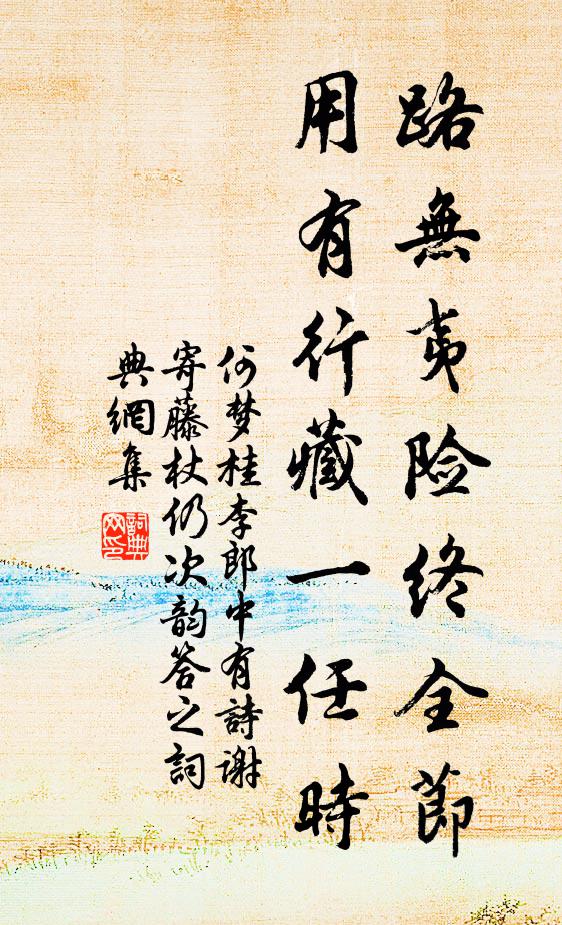 路無夷险终全節
用有行藏一任時
何梦桂李郎中有詩谢
寄藤杖仍次韵答之詞
典網集
詞典网印